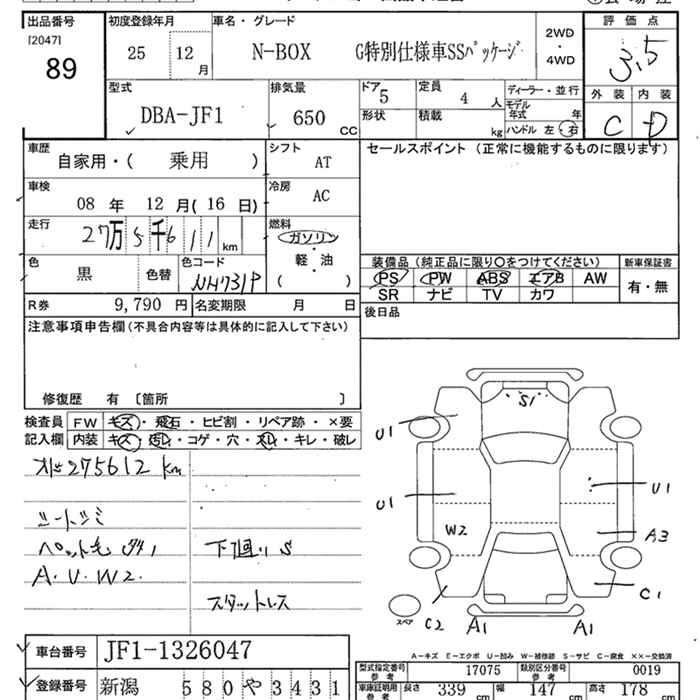 出品番号
[2047]
89
初度登録年月
25 12月
車名・グレード
N-BOX G特別仕様車SSパッケージ
2WD
・
4WD
評価点
3.5
外装 内装
C D
型式
DBA-JF1
排気量
650 CC
ドア 5
形状
定員 4 人
積載 kg
ディーラー・並行
モデル
年式 年
ハンドル 左・右
車歴
自家用・( 乗用 )
シフト
AT
セールスポイント(正常に機能するものに限ります)
車検
08 年 12 月(16 日)
冷房
AC
走行
27万5千611km
燃料
ガソリン
・
軽・油
( )
色
黒 色替
色コード
NH731P
装備品(純正品に限り○をつけてください)
PS PW ABS エアB AW
SR ナビ TV カワ
新車保証書
有・無
R券 9,790 円 名変期限 月 日
後日品
注意事項申告欄(不具合内容等は具体的に記入して下さい)
修復歴 有 〔箇所 〕
検査員
記入欄
FW キズ・飛石・ヒビ割・リペア跡・×要
内装 キズ・汚レ・コゲ・穴・スレ・キレ・破レ
275612 km
シートシミ
ペット毛
A.U.W2.
下廻りS
スタットレス
S1
U1
U1
U1
W2
A3
C1
C2
A1
A1
スペア
車台番号 JF1-1326047
登録番号 新潟 580や3431
A-キズ E-エクボ U-凹み W-補修跡 S-サビ C-腐食 XX-交換済
型式指定番号
参考
17075
類別区分番号
参考
0019
車庫証明用
参考
長さ 339 cm
幅 147 cm
高さ 178 cm